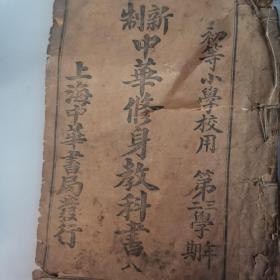 初等小學校用 第三二學年期
新制中華修身教科書 八
上海中華書局發行